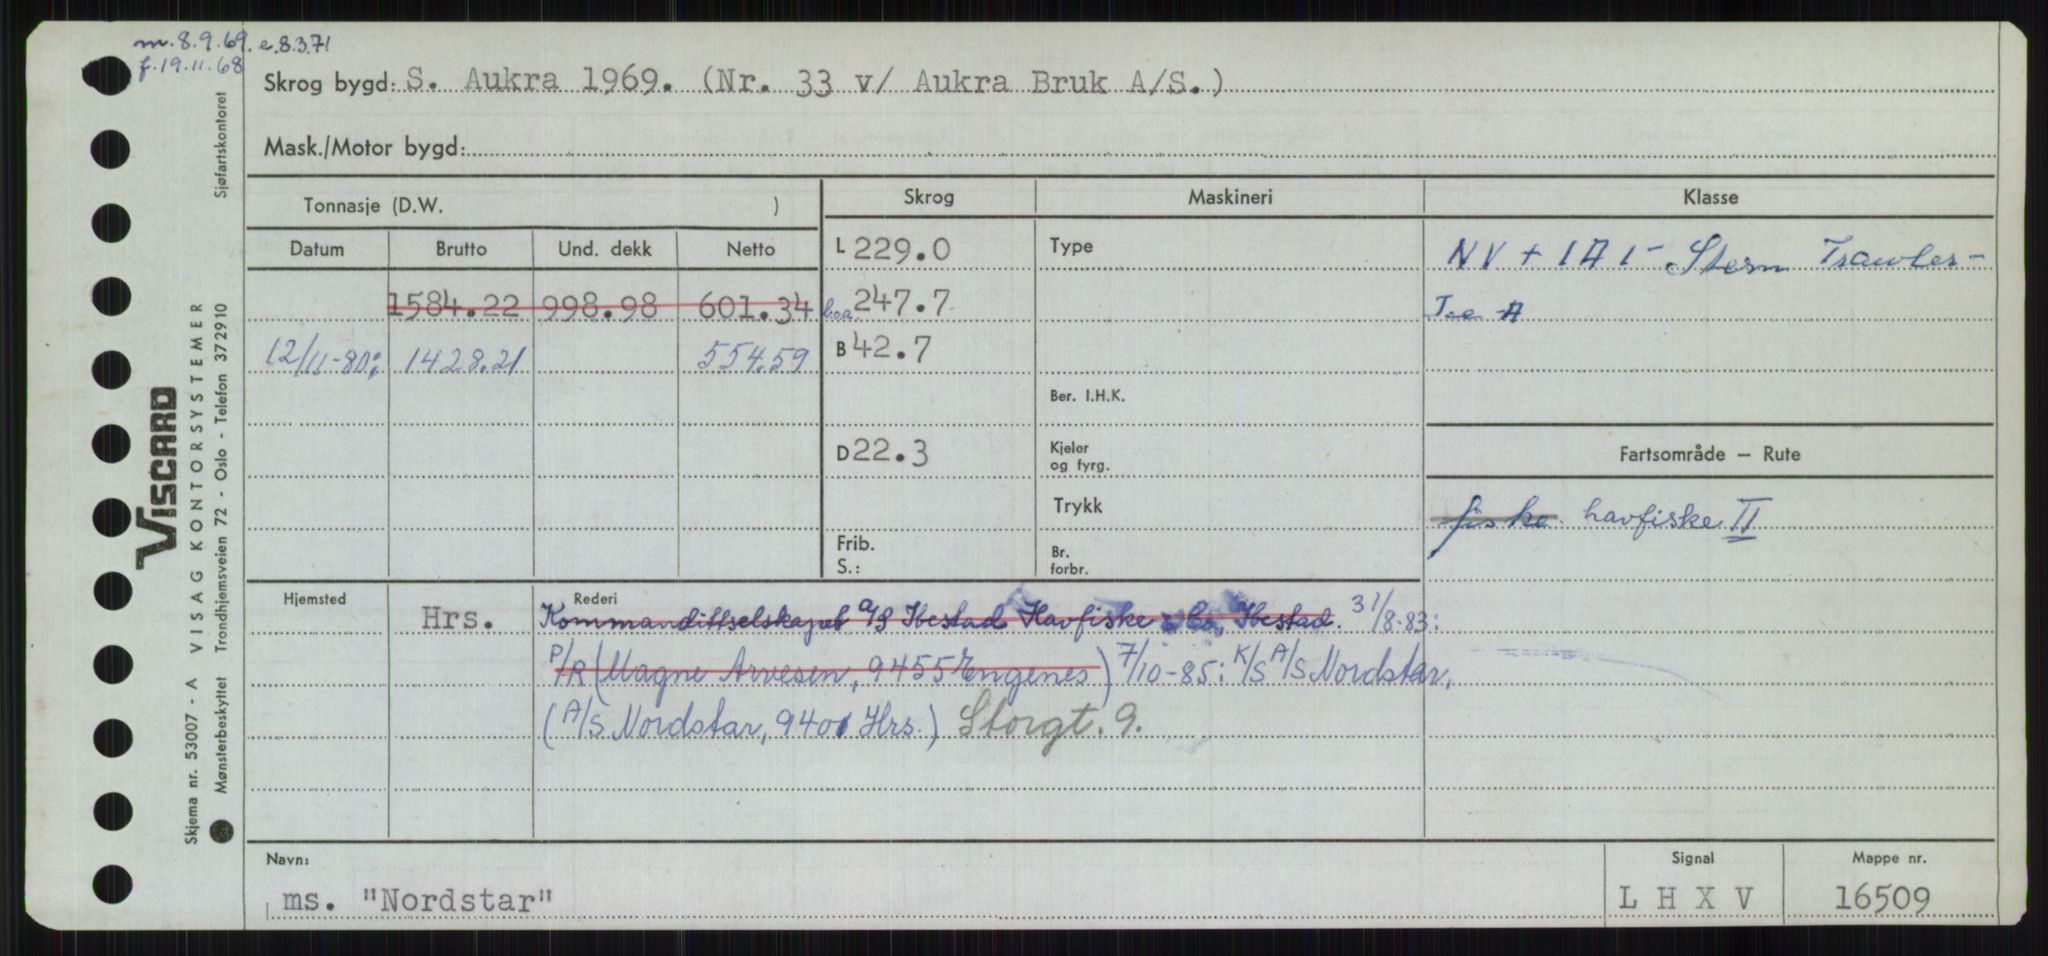 m. 8.9.69. e.8.3.71
f.19.11.68
Skrog bygd: S. Aukra 1969. (Nr. 33 v/ Aukra Bruk A/S.)
Mask./Motor bygd:
Tonnasje (D.W. )
Skrog Maskineri Klasse
Datum Brutto Und. dekk Netto
L 229.0 Type NV + 1A1 - Stern Trawler -
1584.22 998.98 601.34 loa. 247.7 Ice A
12/11-80: 1428.21 554.59 B 42.7
Ber. I.H.K.
D 22.3 Kjeler og fyrg. Fartsområde — Rute
Trykk fiske. havfiske II
Frib. S.: Br. forbr.
Hjemsted Rederi
Hrs. Kommandittselskapet a/s Ibestad Havfiske & Co, Ibestad. 31/8-83:
P/R (Magne Arvesen, 9455 Engenes) 7/10-85: K/S A/S Nordstar,
(A/S Nordstar, 9401 Hrs.) Storgt. 9.
Navn: Signal Mappe nr.
ms. "Nordstar" L H X V 16509
VISCARD
Skjema nr. 53007 - A VISAG KONTORSYSTEMER
Mønsterbeskyttet Trondhjemsveien 72 - Oslo - Telefon 372910 Sjøfartskontoret